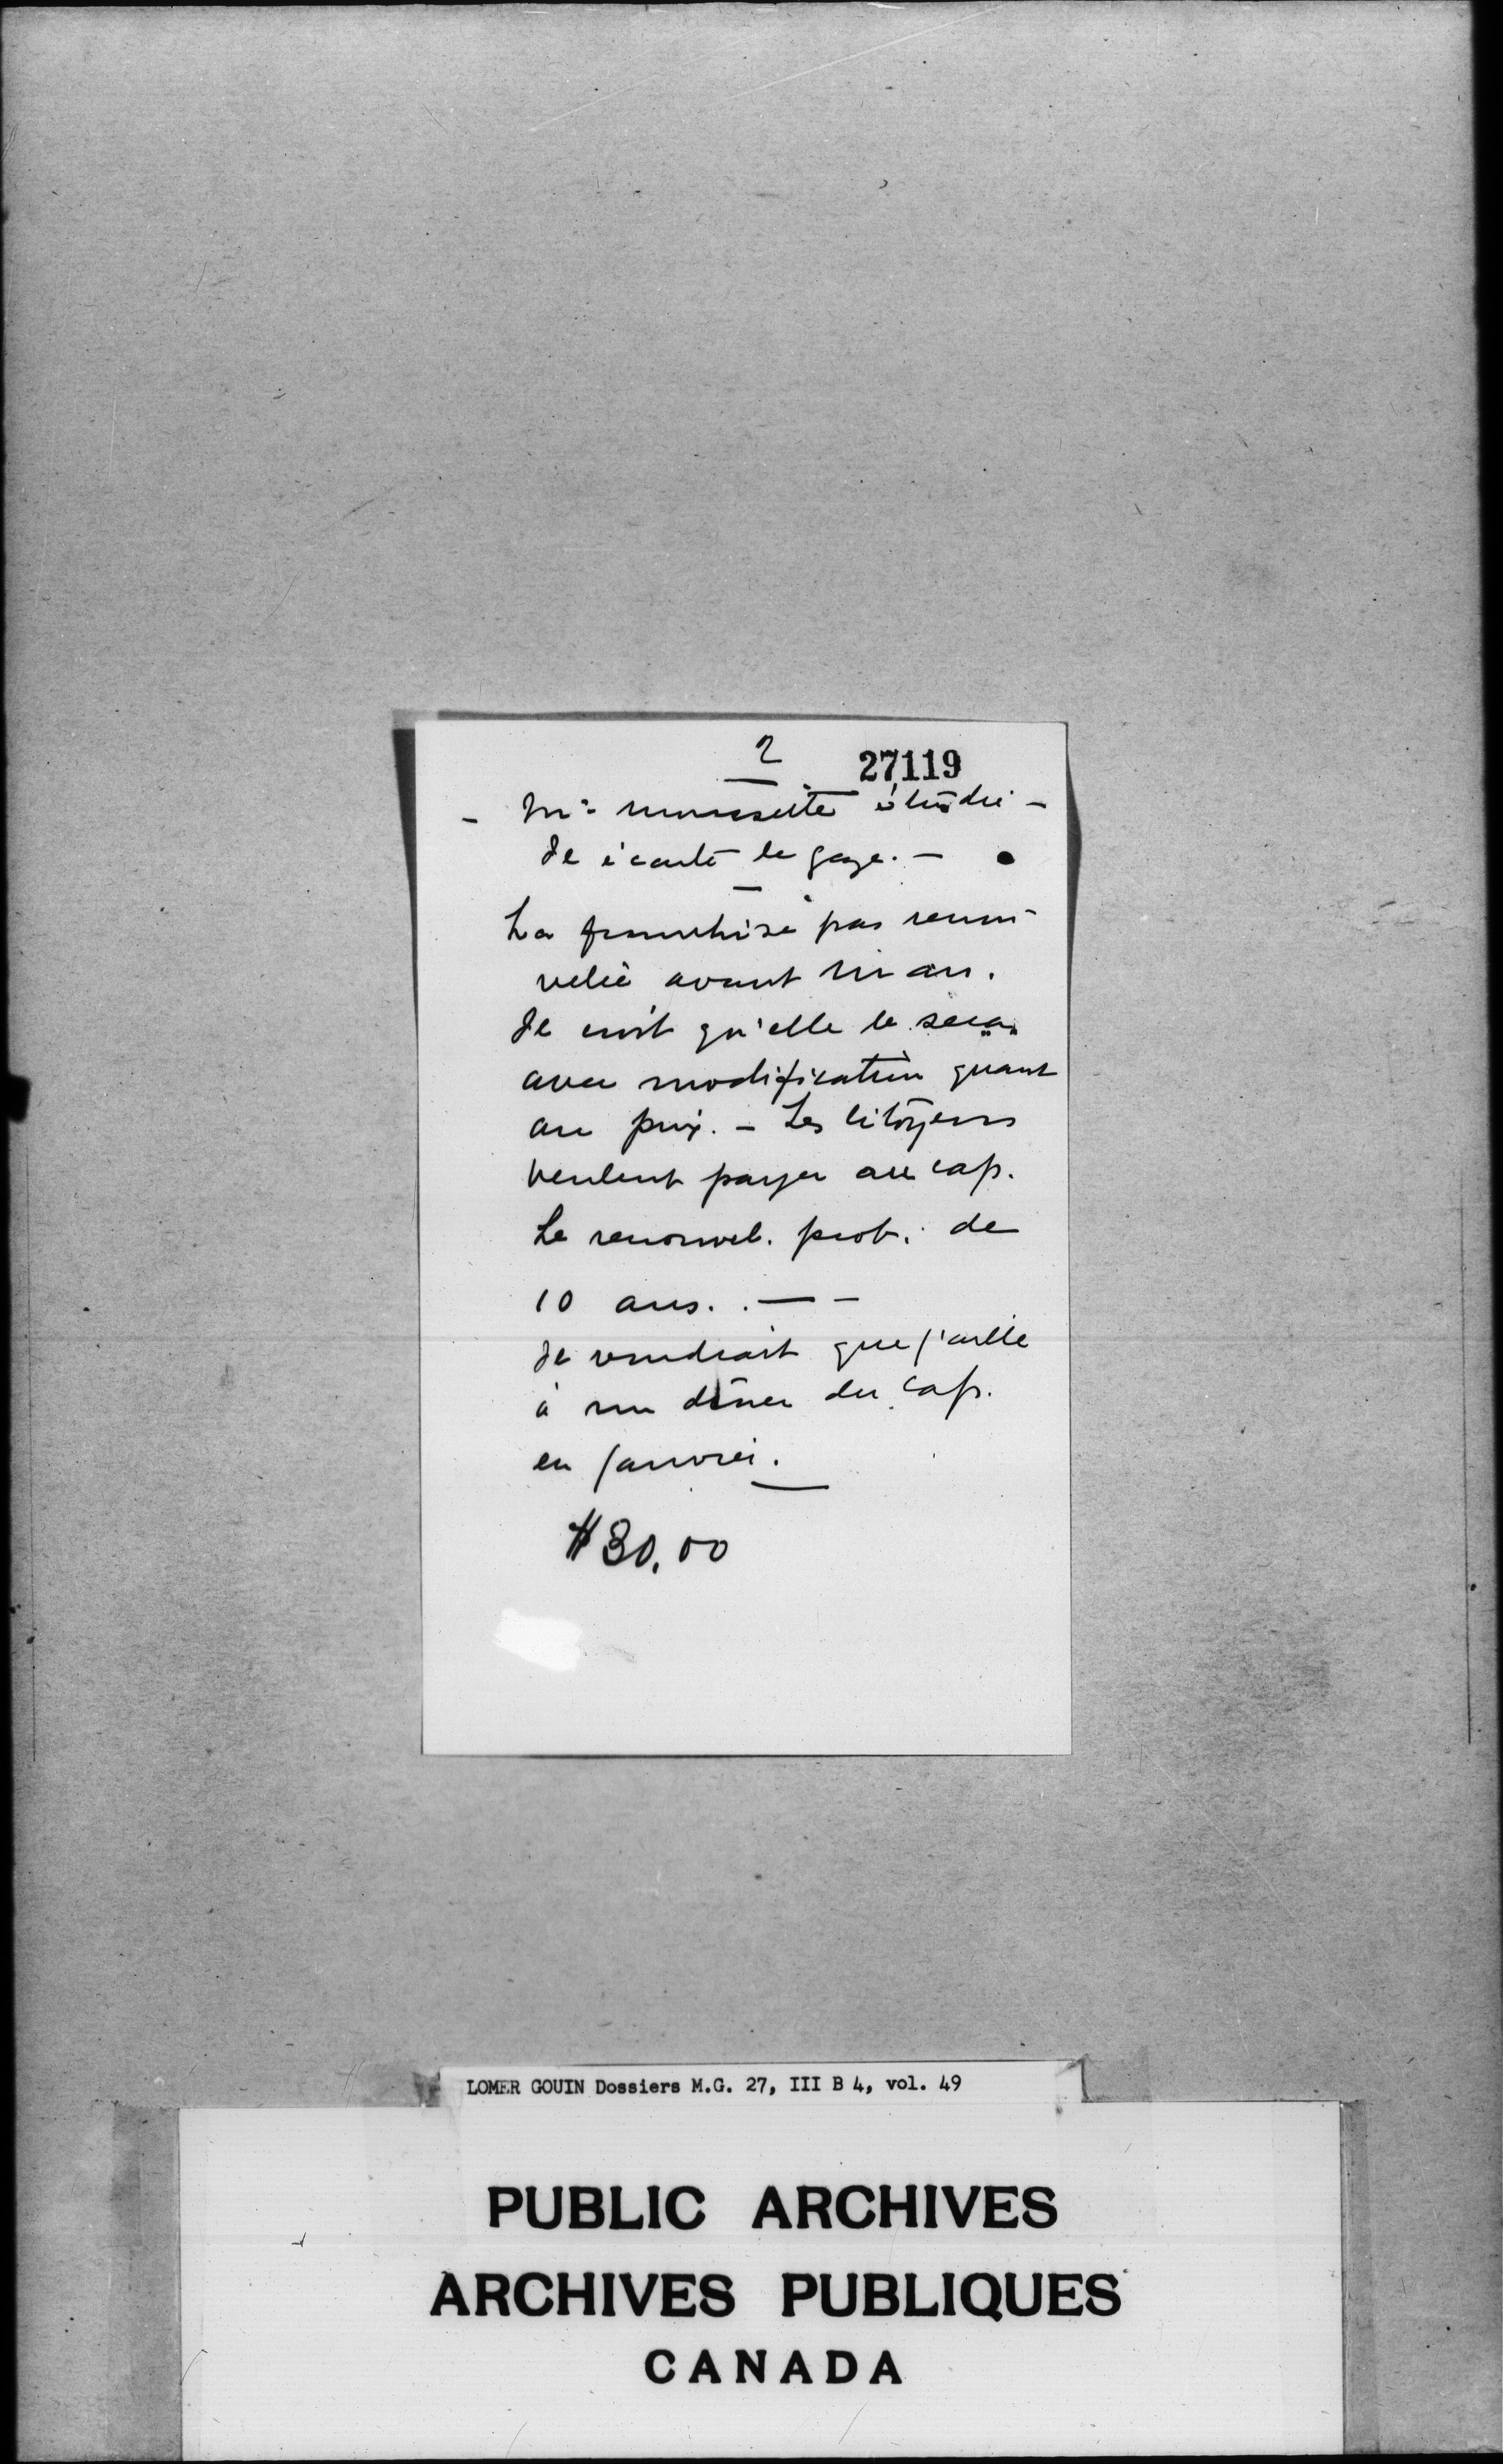 2
27119
- Mr Mousseite étudie -
Il écoute le gaze. -
La franchise pas renou
velée avant un an.
Il croit qu'elle le sera
avec modification quant
au prix. - Les citoyens
veulent payer au cap.
Le renouvel. prob. de
10 ans. . — -
Il voudrait que j'aille
à un dîner du Cap.
en Janvier.
$30.00
LOMER GOUIN Dossiers M.G. 27, III B 4, vol. 49
PUBLIC ARCHIVES
ARCHIVES PUBLIQUES
CANADA